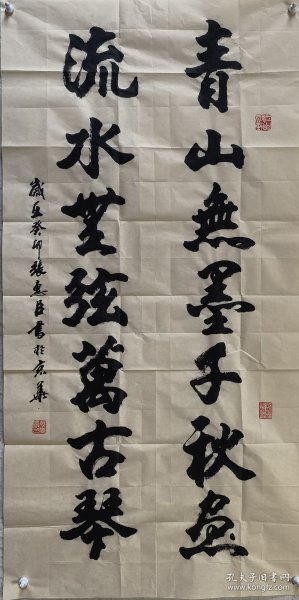 青山無墨千秋画
流水無弦萬古琴
歲在癸卯張惠臣書於京華
孔夫子旧书网